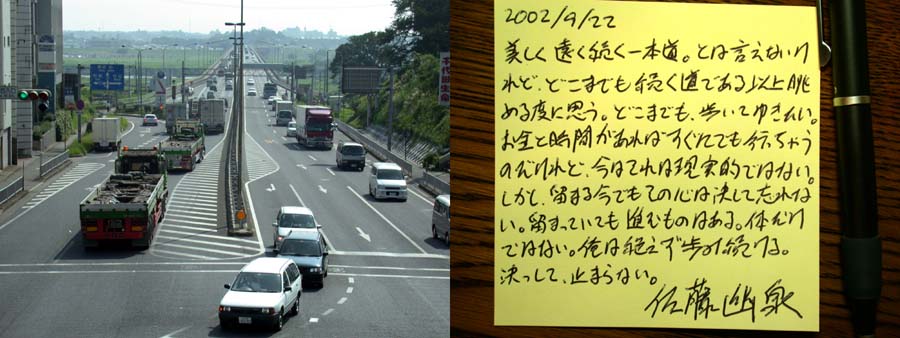 2002/9/22
美しく遠く続く一本道。とは言えないけ
れど、どこまでも続く道である以上眺
める度に思う。どこまでも、歩いてゆきたい。
お金と時間があればすぐにでも行っちゃう
のだけれど、今はそれは現実的ではない。
しかし、留まる今でもその心は決して忘れな
い。留まっていても進むものはある。体だけ
ではない。俺は絶えず歩み続ける。
決っして、止まらない。
佐藤幽泉